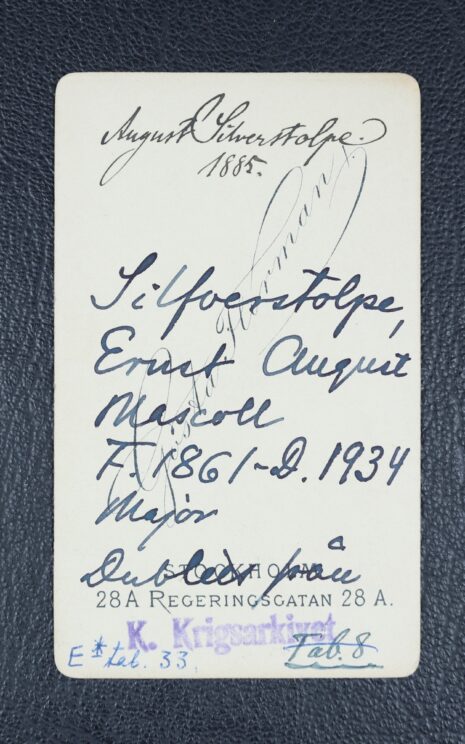 August Silverstolpe.
1885.
Silfverstolpe,
Ernst August
Mascoll
F. 1861-D. 1934
Major
Dublett från
STOCKHOLM
28A REGERINGSGATAN 28 A.
K. Krigsarkivet
E tab. 33.
Tab. 8